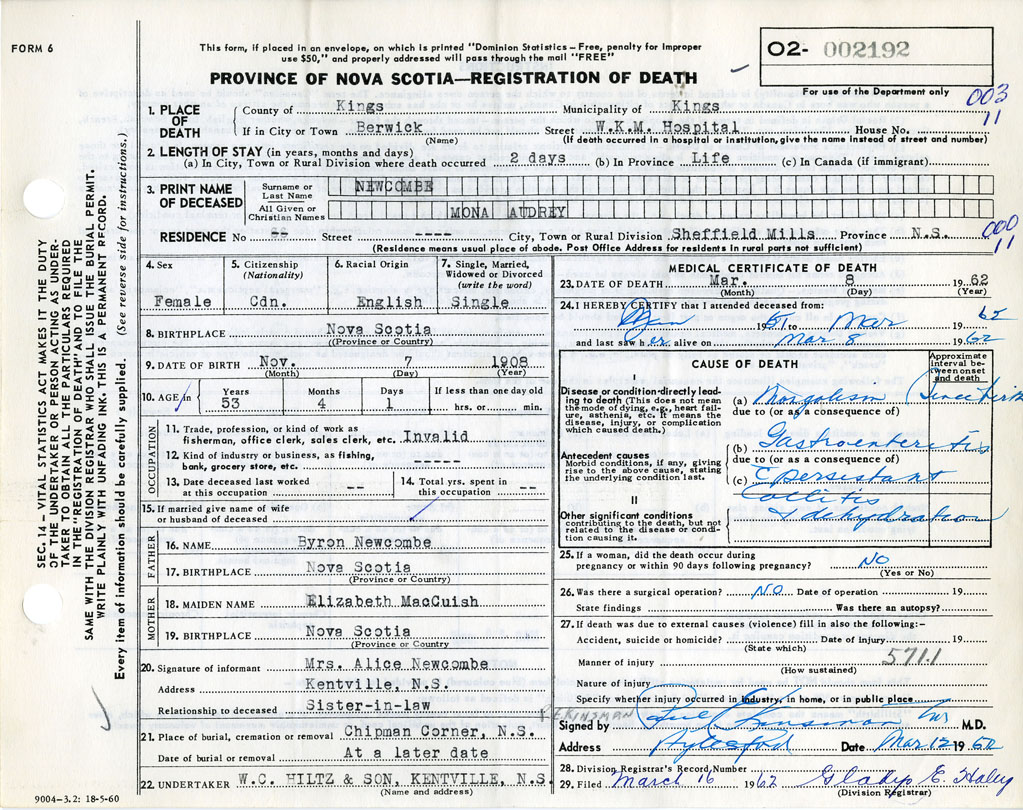 FORM 6
This form, if placed in an envelope, on which is printed "Dominion Statistics – Free, penalty for improper
use $50," and properly addressed will pass through the mail "FREE"
O2- 002192
For use of the Department only
PROVINCE OF NOVA SCOTIA—REGISTRATION OF DEATH
003
11
1. PLACE OF DEATH
County of Kings Municipality of Kings
If in City or Town Berwick Street W.K.M. Hospital House No.
(Name) (If death occurred in a hospital or institution, give the name instead of street and number)
2. LENGTH OF STAY (in years, months and days)
(a) In City, Town or Rural Division where death occurred 2 days (b) In Province Life (c) In Canada (if immigrant)
3. PRINT NAME OF DECEASED
Surname or Last Name NEWCOMBE
All Given or Christian Names MONA AUDREY
RESIDENCE No -- Street ---- City, Town or Rural Division Sheffield Mills Province N.S.
(Residence means usual place of abode. Post Office Address for residents in rural parts not sufficient)
000
11
4. Sex Female
5. Citizenship (Nationality) Cdn.
6. Racial Origin English
7. Single, Married, Widowed or Divorced (write the word) Single
8. BIRTHPLACE Nova Scotia
(Province or Country)
9. DATE OF BIRTH Nov. 7 1908
(Month) (Day) (Year)
10. AGE in Years 53 Months 4 Days 1 If less than one day old hrs. or min.
OCCUPATION
11. Trade, profession, or kind of work as
fisherman, office clerk, sales clerk, etc. Invalid
12. Kind of industry or business, as fishing,
bank, grocery store, etc. -----
13. Date deceased last worked
at this occupation --
14. Total yrs. spent in
this occupation --
15. If married give name of wife
or husband of deceased
FATHER
16. NAME Byron Newcombe
17. BIRTHPLACE Nova Scotia
(Province or Country)
MOTHER
18. MAIDEN NAME Elizabeth MacCuish
19. BIRTHPLACE Nova Scotia
(Province or Country)
20. Signature of informant Mrs. Alice Newcombe
Address Kentville, N.S.
Relationship to deceased Sister-in-law
21. Place of burial, cremation or removal Chipman Corner, N.S.
Date of burial or removal At a later date
22. UNDERTAKER W.C. HILTZ & SON, KENTVILLE, N.S
(Name and address)
9004-3.2: 18-5-60
MEDICAL CERTIFICATE OF DEATH
23. DATE OF DEATH Mar. 8 1962
(Month) (Day) (Year)
24. I HEREBY CERTIFY that I attended deceased from:
19 to Mar 1962
and last saw her alive on Mar 8 1962
CAUSE OF DEATH
Approximate interval between onset and death
I
Disease or condition directly leading to death (This does not mean
the mode of dying, e.g., heart failure, asthenia, etc. It means the
disease, injury, or complication
which caused death.)
(a) Mongolism Since birth
due to (or as a consequence of)
Antecedent causes
Morbid conditions, if any, giving
rise to the above cause, stating
the underlying condition last.
(b) Gastroenteritis
due to (or as a consequence of)
(c) c persistant
Collitis
II
Other significant conditions
contributing to the death, but not
related to the disease or condition causing it.
& dehydration
25. If a woman, did the death occur during
pregnancy or within 90 days following pregnancy? No
(Yes or No)
26. Was there a surgical operation? No Date of operation 19
State findings Was there an autopsy?
27. If death was due to external causes (violence) fill in also the following:–
Accident, suicide or homicide? Date of injury 19
(State which)
571.1
Manner of injury
(How sustained)
Nature of injury
Specify whether injury occurred in industry, in home, or in public place
Signed by Kinsman M.D.
KINSMAN
Address Aylesford Date Mar 12 1962
28. Division Registrar's Record Number
29. Filed March 16 1962 Gladys E. Haley
(Division Registrar)
SEC. 14 – VITAL STATISTICS ACT MAKES IT THE DUTY
OF THE UNDERTAKER OR PERSON ACTING AS UNDERTAKER TO OBTAIN ALL THE PARTICULARS REQUIRED
IN THE "REGISTRATION OF DEATH" AND TO FILE THE
SAME WITH THE DIVISION REGISTRAR WHO SHALL ISSUE THE BURIAL PERMIT.
WRITE PLAINLY WITH UNFADING INK. THIS IS A PERMANENT RECORD.
Every item of information should be carefully supplied. (See reverse side for instructions.)